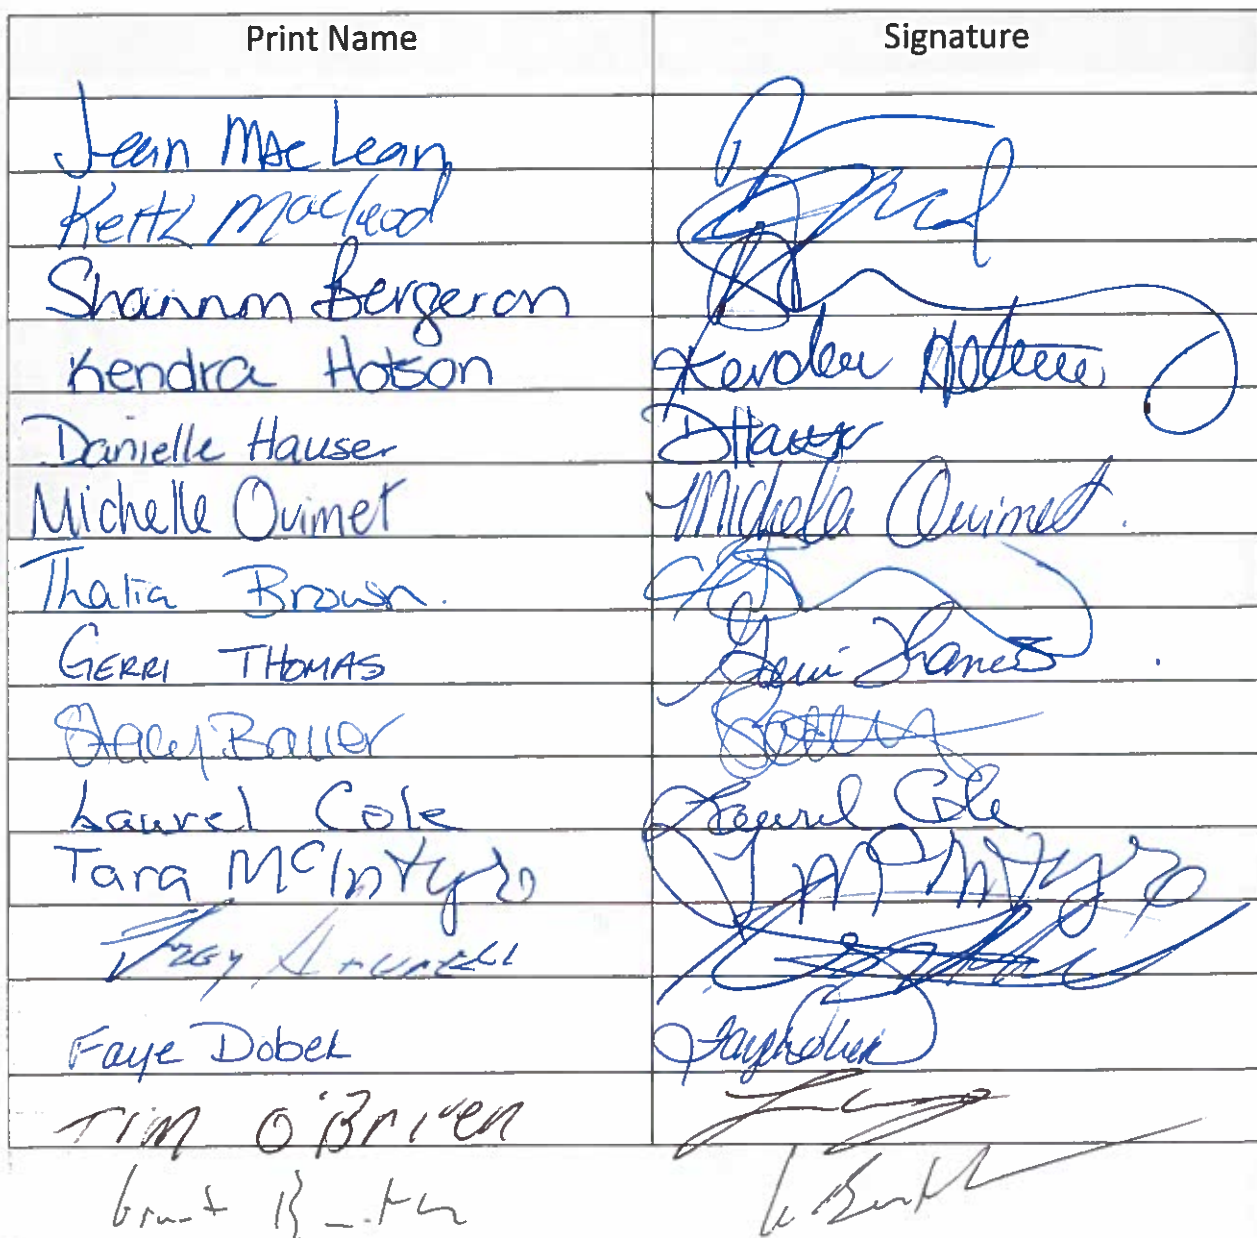 Print Name Signature
Jean MacLean
Keith MacLeod
Shannon Bergeron
Kendra Hotson Kendra Hotson
Danielle Hauser DHauser
Michelle Ouimet Michelle Ouimet.
Thalia Brown.
GERRI THOMAS Gerri Thomas
Stacy Bauer
Laurel Cole Laurel Cole
Tara McIntyre T McIntyre
Faye Dobek Faye Dobek
Tim O'Brien